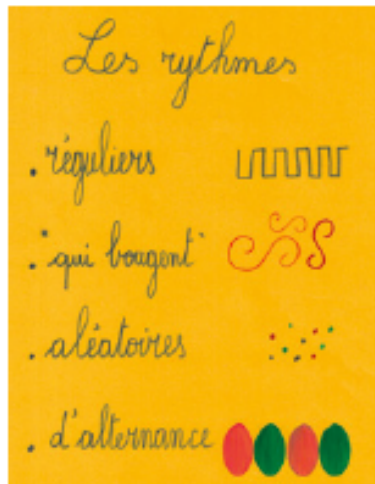 Les rythmes
. réguliers
. "qui bougent"
. aléatoires
. d'alternance